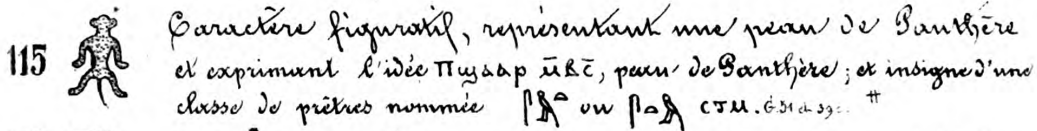 115 Caractère figuratif, représentant une peau de Panthère
et exprimant l'idée Πϣⲁⲁⲣ ⲙ̄ⲃⲥ̄, peau de Panthère; et insigne d'une
classe de prêtres nommée ou ⲤⲦⲘ.